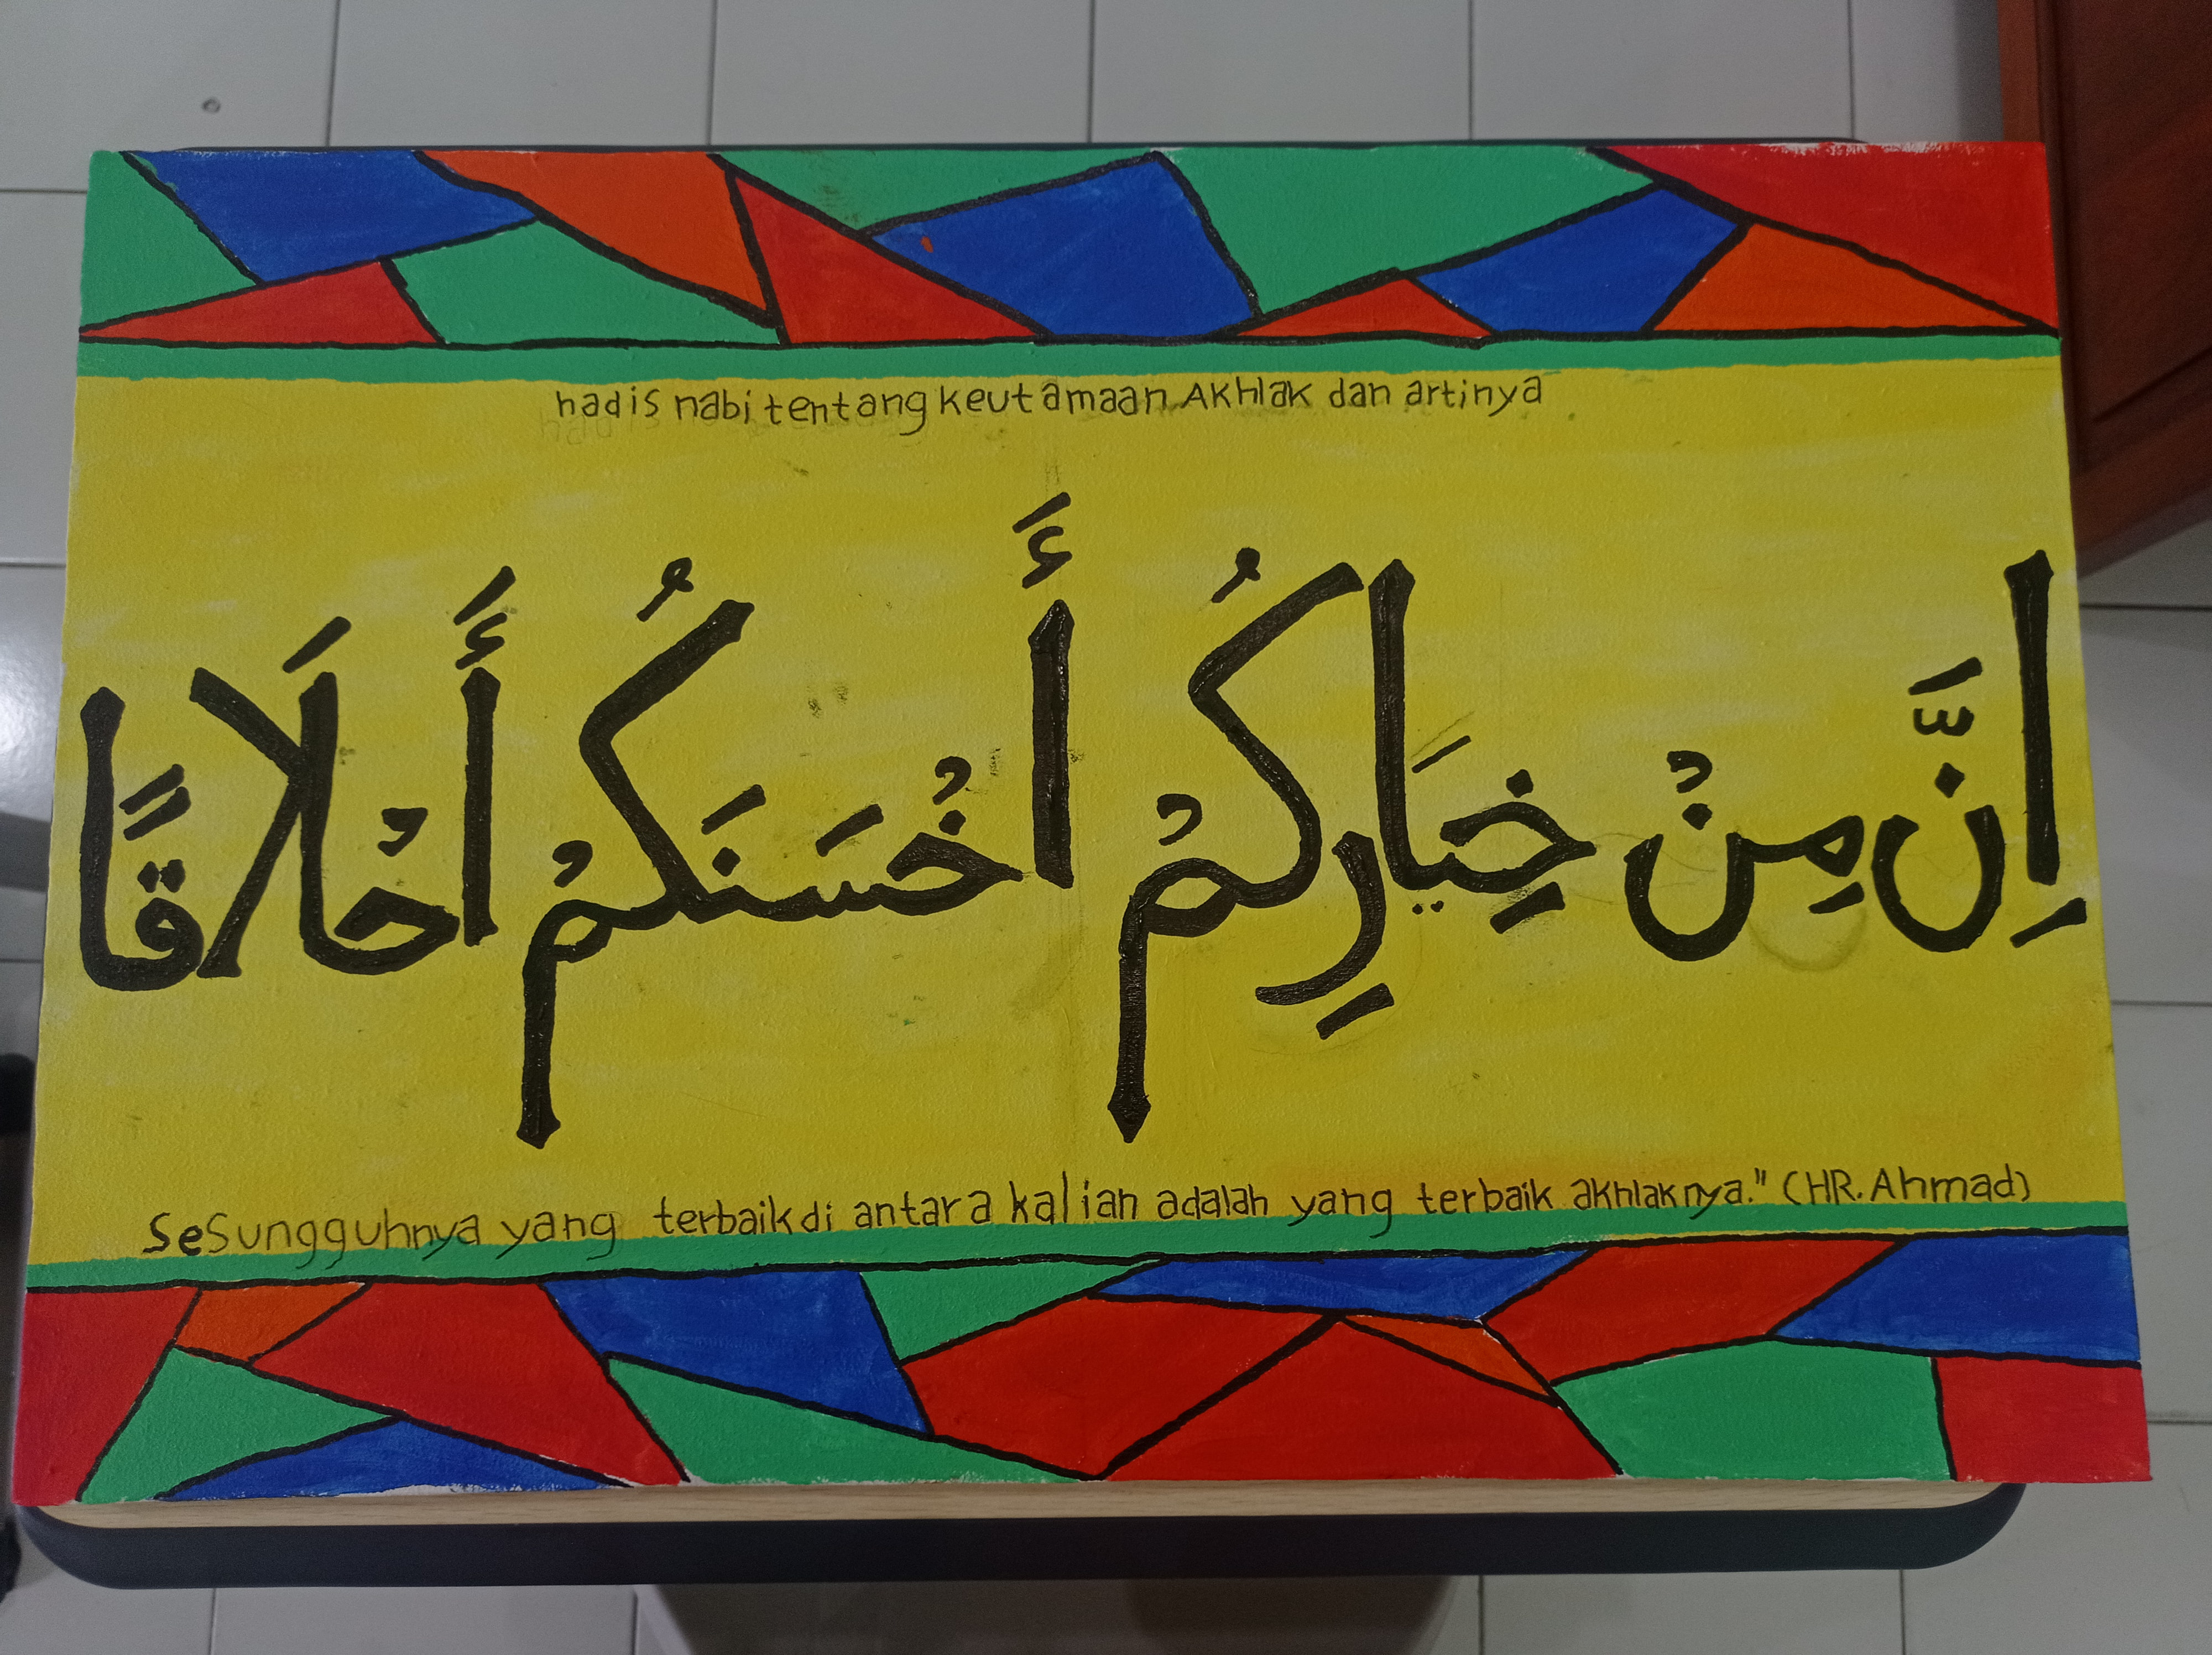 hadis nabi tentang keutamaan AKhlak dan artinya
اِنَّ مِنْ خِيَارِكُمْ أَخْسَنَكُمْ أَخْلَاقًا
Sesungguhnya yang terbaik di antara kalian adalah yang terbaik akhlaknya." (HR. Ahmad)